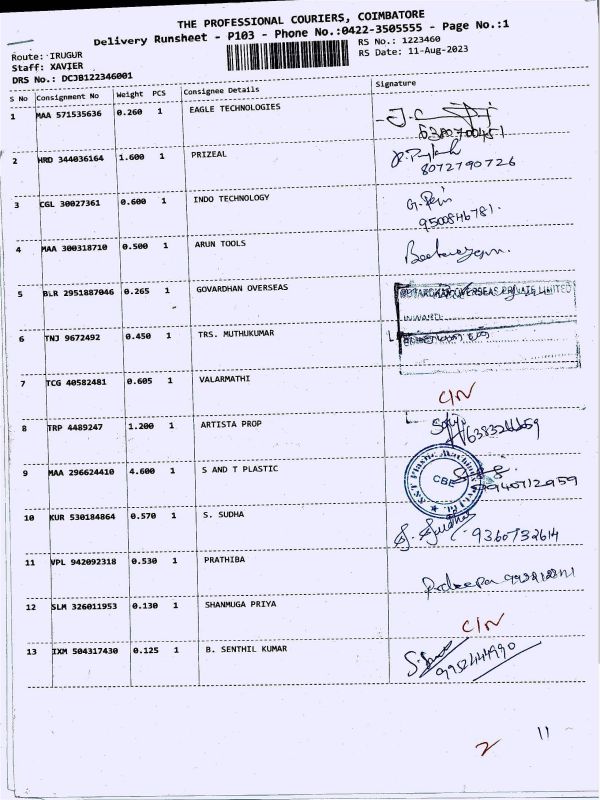 THE PROFESSIONAL COURIERS, COIMBATORE
Delivery Runsheet - P103 - Phone No.:0422-3505555 - Page No.:1
Route: IRUGUR
RS No.: 1223460
Staff: XAVIER
RS Date: 11-Aug-2023
DRS No.: DCJB122346001
S No Consignment No Weight PCS Consignee Details Signature
1 MAA 571535636 0.260 1 EAGLE TECHNOLOGIES
2 HRD 344036164 1.600 1 PRIZEAL
8072790726
3 CGL 30027361 0.600 1 INDO TECHNOLOGY
9500846781.
4 MAA 300318710 0.500 1 ARUN TOOLS
5 BLR 2951887046 0.265 1 GOVARDHAN OVERSEAS
OVERSEAS PRIVATE LIMITED
INWARD
6 TNJ 9672492 0.450 1 TRS. MUTHUKUMAR
7 TCG 40582481 0.605 1 VALARMATHI
C/N
8 TRP 4489247 1.200 1 ARTISTA PROP
9 MAA 296624410 4.600 1 S AND T PLASTIC
S&T Plastic Machines Pvt. Ltd.
CBE
10 KUR 530184864 0.570 1 S. SUDHA
9360732614
11 VPL 942092318 0.530 1 PRATHIBA
12 SLM 326011953 0.130 1 SHANMUGA PRIYA
C/N
13 IXM 504317430 0.125 1 B. SENTHIL KUMAR
9952444990
2 11